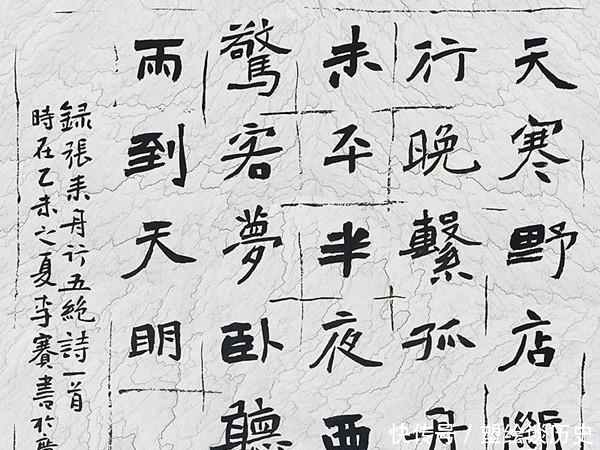 天寒野店斷
行晚繫孤舟
未平半夜西
驚客夢臥聽
雨到天明
錄張耒舟行五絕詩一首
時在乙未之夏李賽書於
快传号/塑绘谈历史